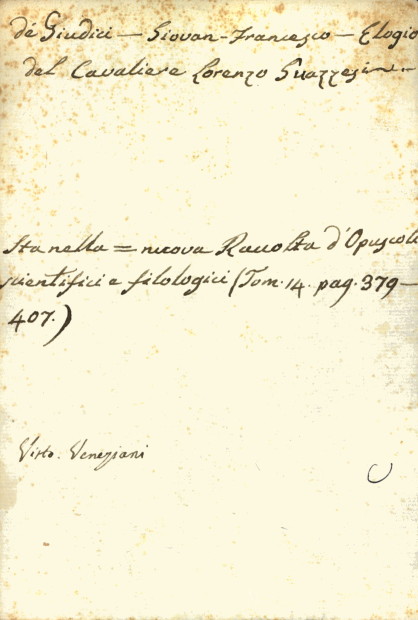 de' Giudici — Giovan-Francesco — Elogio
del Cavaliere Lorenzo Guazzesi —
Sta nella = nuova Raccolta d'Opuscoli
scientifici e filologici (Tom. 14. pag. 379 —
407.)
Visto. Veneziani